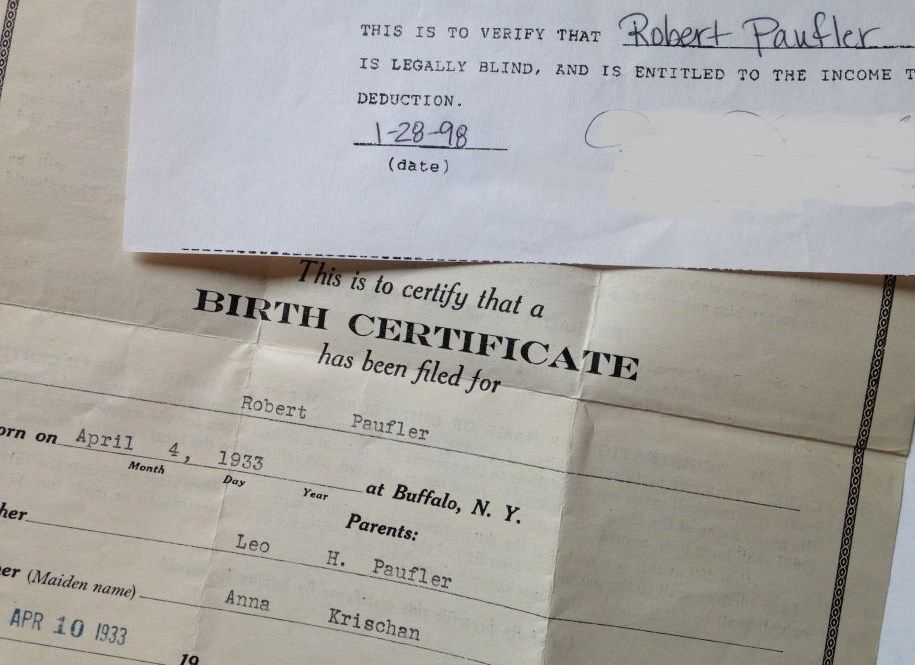 THIS IS TO VERIFY THAT Robert Paufler
IS LEGALLY BLIND, AND IS ENTITLED TO THE INCOME T
DEDUCTION.
1-28-98
(date)
This is to certify that a
BIRTH CERTIFICATE
has been filed for
Robert Paufler
orn on April 4, 1933
Month Day Year
at Buffalo, N. Y.
Parents:
her Leo H. Paufler
er (Maiden name) Anna Krischan
APR 10 1933
19